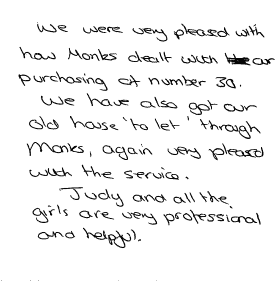 We were very pleased with
how Monks dealt with our
purchasing of number 30.
We have also got our
old house 'to let' through
Monks, again very pleased
with the service.
Judy and all the
girls are very professional
and helpful.